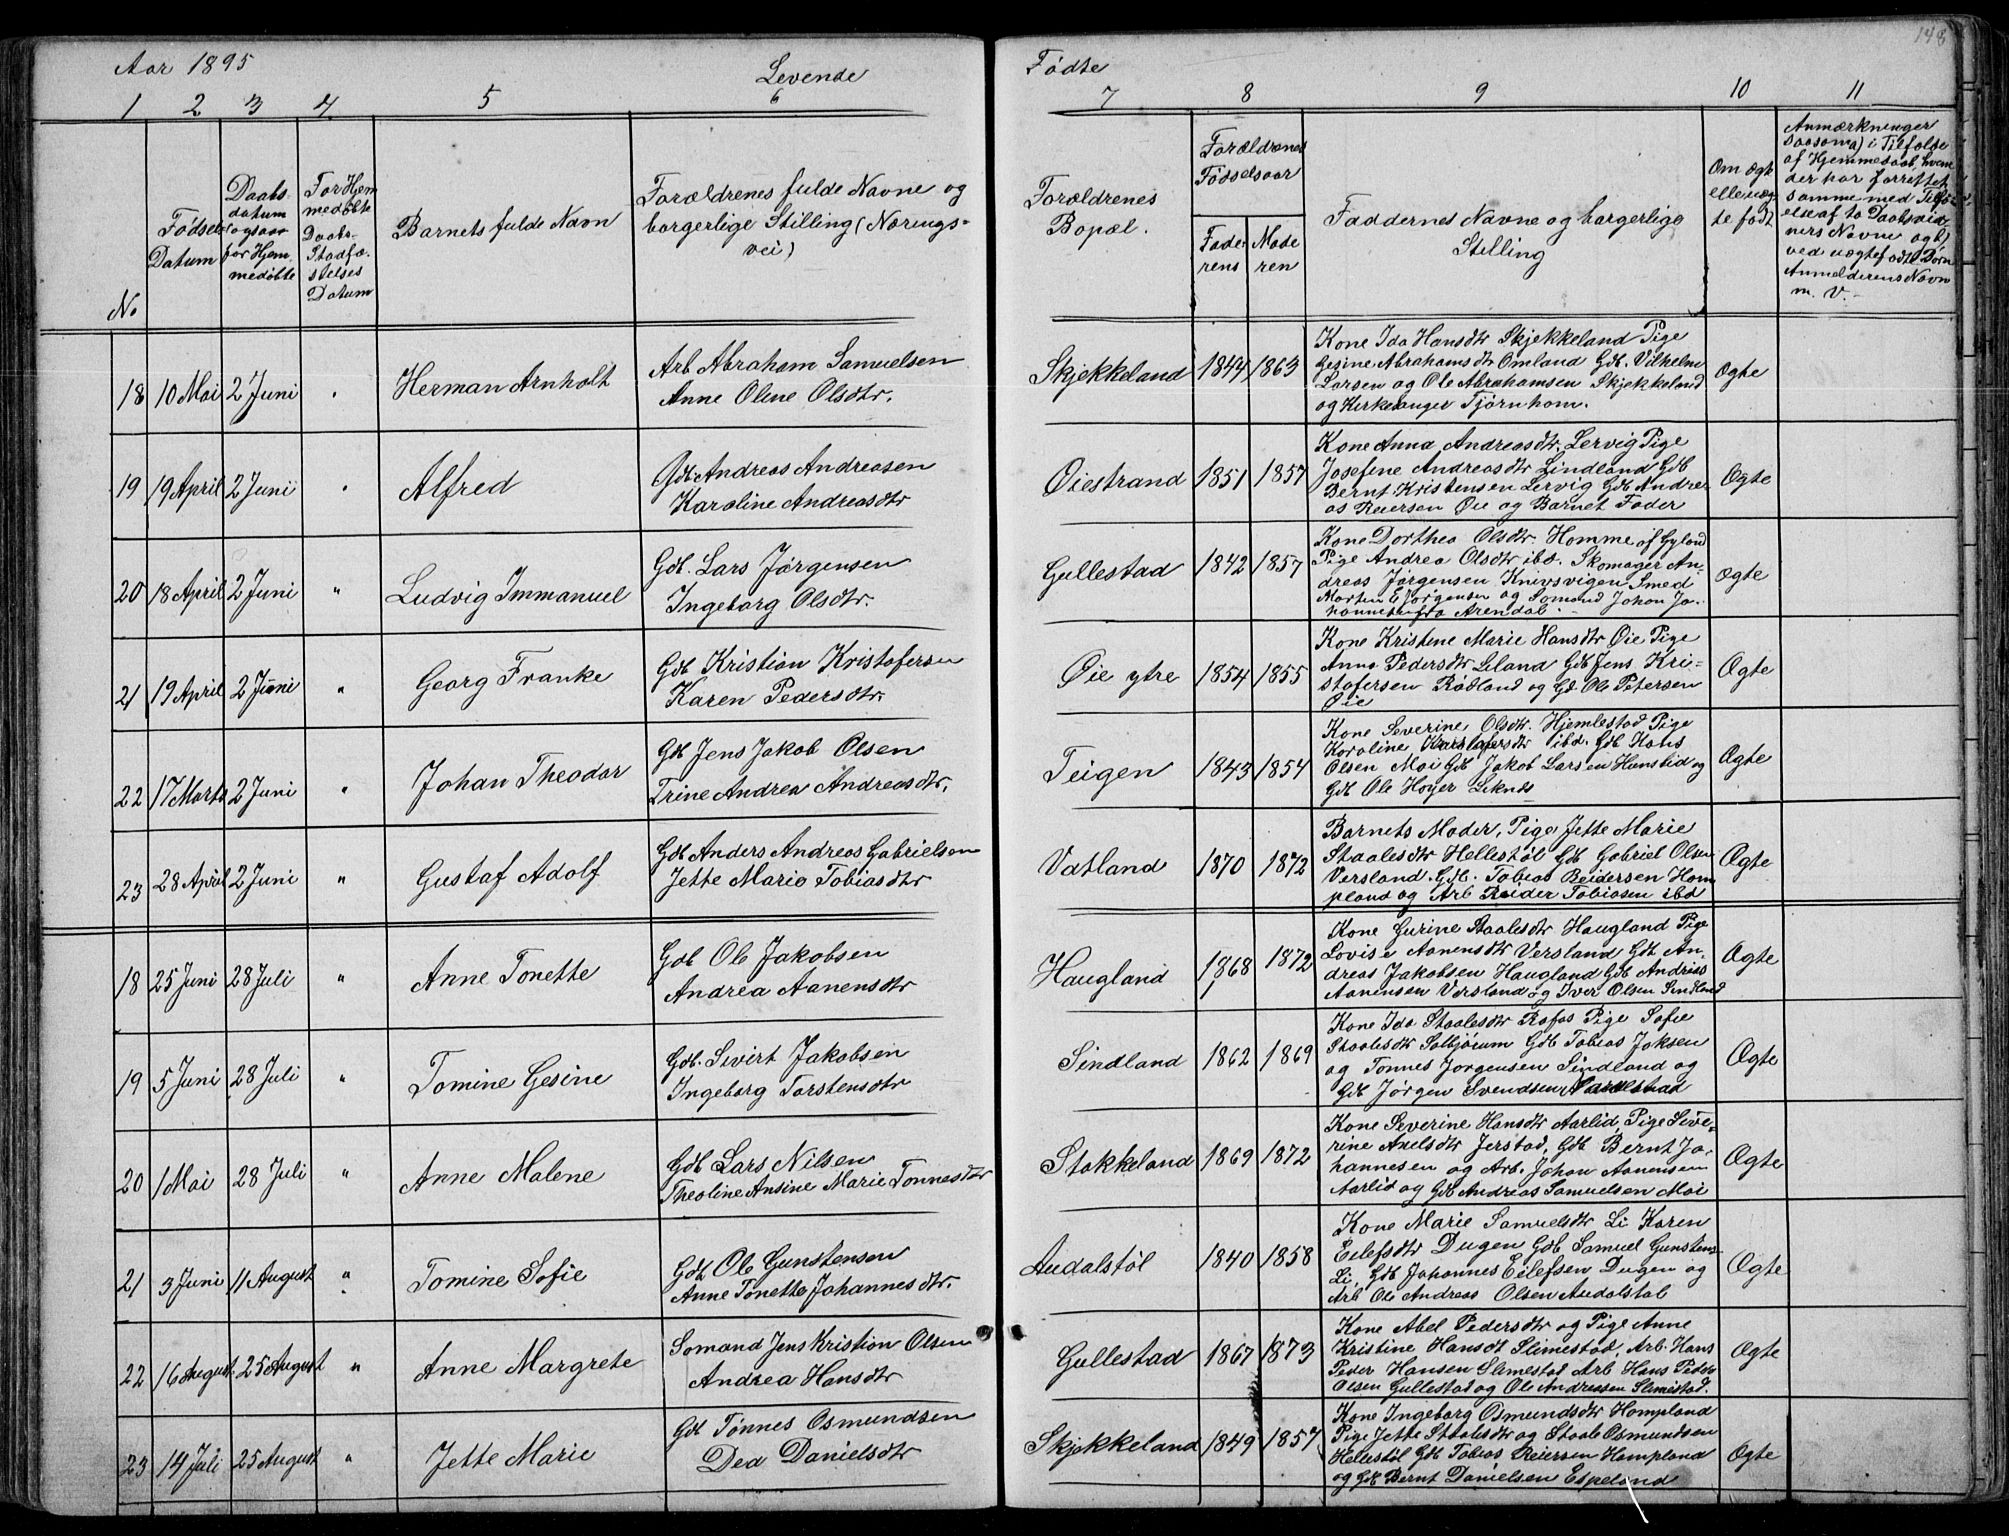 148
Aar 1895 Levende Fødte
1 2 3 4 5 6 7 8 9 10 11
No
Fødsels Datum
Daabsdatum ogsaa for Hjemmedøbte
For Hjemmedøbte Daabs-Stadfæstelses Datum
Barnets fulde Navn
Forældrenes fulde Navne og
borgerlige Stilling (Nærings-
vei)
Forældrenes
Bopæl.
Forældrenes
Fødselsaar
Faderens Moderen
Faddernes Navne og borgerlige
Stilling
Om ægte
elle uæg-
te født
Anmærkninger
saasom a) i Tilfælde
af Hjemmedaab, hvem
der har forrettet
samme med Tilføi-
else af to Daabsvid-
ners Navne og b)
ved uægtefødte Børn
Anmelderens Navn
m. v.
18 10 Mai 2 Juni Herman Arnholt
Arb Abraham Samuelsen
Anne Oline Olsdtr.
Skjekkeland 1844 1863
Kone Ida Hansdtr Skjekkeland Pige
Gesine Abrahamsdtr Omland Gdb. Vilhelm
Larsen og Ole Abrahamsen Skjekkeland
og Kirkesanger Tjørnhom.
Ægte
19 19 April 2 Juni Alfred
Gdb. Andreas Andreasen
Karoline Andreasdtr
Øiestrand 1851 1857
Kone Anna Andreasdtr. Lervig Pige
Josefine Andreasdtr Lindland Gdb
Bernt Kristensen Lervig Gdb Andre-
as Reiersen Øie og Barnet Fader
Ægte
20 18 April 2 Juni " Ludvig Immanuel
Gdb. Lars Jørgensen
Ingeborg Olsdtr.
Gullestad 1842 1857
Kone Dorthea Olsdtr. Homme af Gyland
Pige Andrea Olsdtr ibd. Skomager An-
dreas Jørgensen Knivsvigen Smed
Morten E Jørgensen og Sømand Johan Jo-
hannesen fra Arendal
ægte
21 19 April 2 Juni " Georg Franke
Gdb Kristian Kristofersen
Karen Pedersdtr.
Øie ytre 1854 1855
Kone Kristine Marie Hansdtr Øie Pige
Anna Pedersdtr Leland Gdb Jens Kri-
stofersen Rødland og Gd. Ole Petersen
Øie
Ægte
22 17 Marts 2 Juni " Johan Theodor
Gdb Jens Jakob Olsen
Trine Andrea Andreasdtr.
Teigen 1843 1854
Kone Severine Olsdtr. Hjemlestad Pige
Karoline Kristofersdtr ibd. Gdb Hans
Olsen Moi Gdb Jakob Larsen Hunstid og
Gdb Ole Høyer Liknes
Ægte
23 28 April 2 Juni " Gustaf Adolf
Gdb Anders Andreas Gabrielsen
Jette Marie Tobiasdtr
Vatland 1870 1872
Barnets Moder, Pige Jette Marie
Staalesdtr Hellestøl Gdb Gabriel Olsen
Versland. Gdb. Tobias Reidersen Hom-
pland og Arb Reider Tobiasen ibd
Ægte
18 25 Juni 28 Juli " Anne Tonette
Gdb Ole Jakobsen
Andrea Aanensdtr
Haugland 1868 1872
Kone Gurine Staalesdtr Haugland Pige
Lovise Aanensdtr Versland Gdb An-
dreas Jakobsen Haugland Gdb Andreas
Aanensen Versland og Iver Olsen Sindland
Ægte
19 5 Juni 28 Juli " Tomine Gesine
Gdb. Sivert Jakobsen
Ingeborg Torstensdtr
Sindland 1862 1869
Kone Ida Staalesdtr Rafos Pige Sofie
Staalesdtr Solbjørum Gdb Tobias Jaksen
og Tønnes Jørgensen Sindland og
Gdb Jørgen Svendsen
Ægte
20 1 Mai 28 Juli " Anne Malene
Gdb Lars Nilsen
Theoline Ansine Marie Tønnesdtr
Stakkeland 1869 1872
Kone Severine Hansdtr Aarlid, Pige Seve-
rine Axelsdtr Jerstad, Gdb Bernt Jo-
hannesen og Arb. Johan Aanensen
Aarlid og Gdb Andreas Samuelsen Moi
Ægte
21 3 Juni 11 August " Tomine Sofie
Gdb Ole Gunstensen
Anne Tonette Johannesdtr.
Audalstøl 1840 1858
Kone Marie Samuelsdtr Li Karen
Eilefsdtr Dugen Gdb Samuel Gunstens-
Li, Gdb Johannes Eilefsen Dugen og
Arb Ole Andreas Olsen Audalstøl
Ægte
22 16 August 25 August " Anne Margrete
Sømand Jens Kristian Olsen
Andrea Hansdtr
Gullestad 1867 1873
Kone Abel Pedersdtr og Pige Anne
Kristine Hansdt Slimestad, Arb. Hans
Peder Hansen Slimestad Arb Hans Peder
Olsen Gullestad og Ole Andreasen Slimestad.
Ægte
23 14 Juli 25 August " Jette Marie
Gdb Tønnes Osmundsen
Dea Danielsdtr
Skjekkeland 1849 1857
Kone Ingeborg Osmundsdtr Hompland
Pige Jette Staalesdtr og Staale Osmundsen
Hellestøl Gdb Tobias Reiersen Hompland
og Gdb Bernt Danielsen Espeland
Ægte